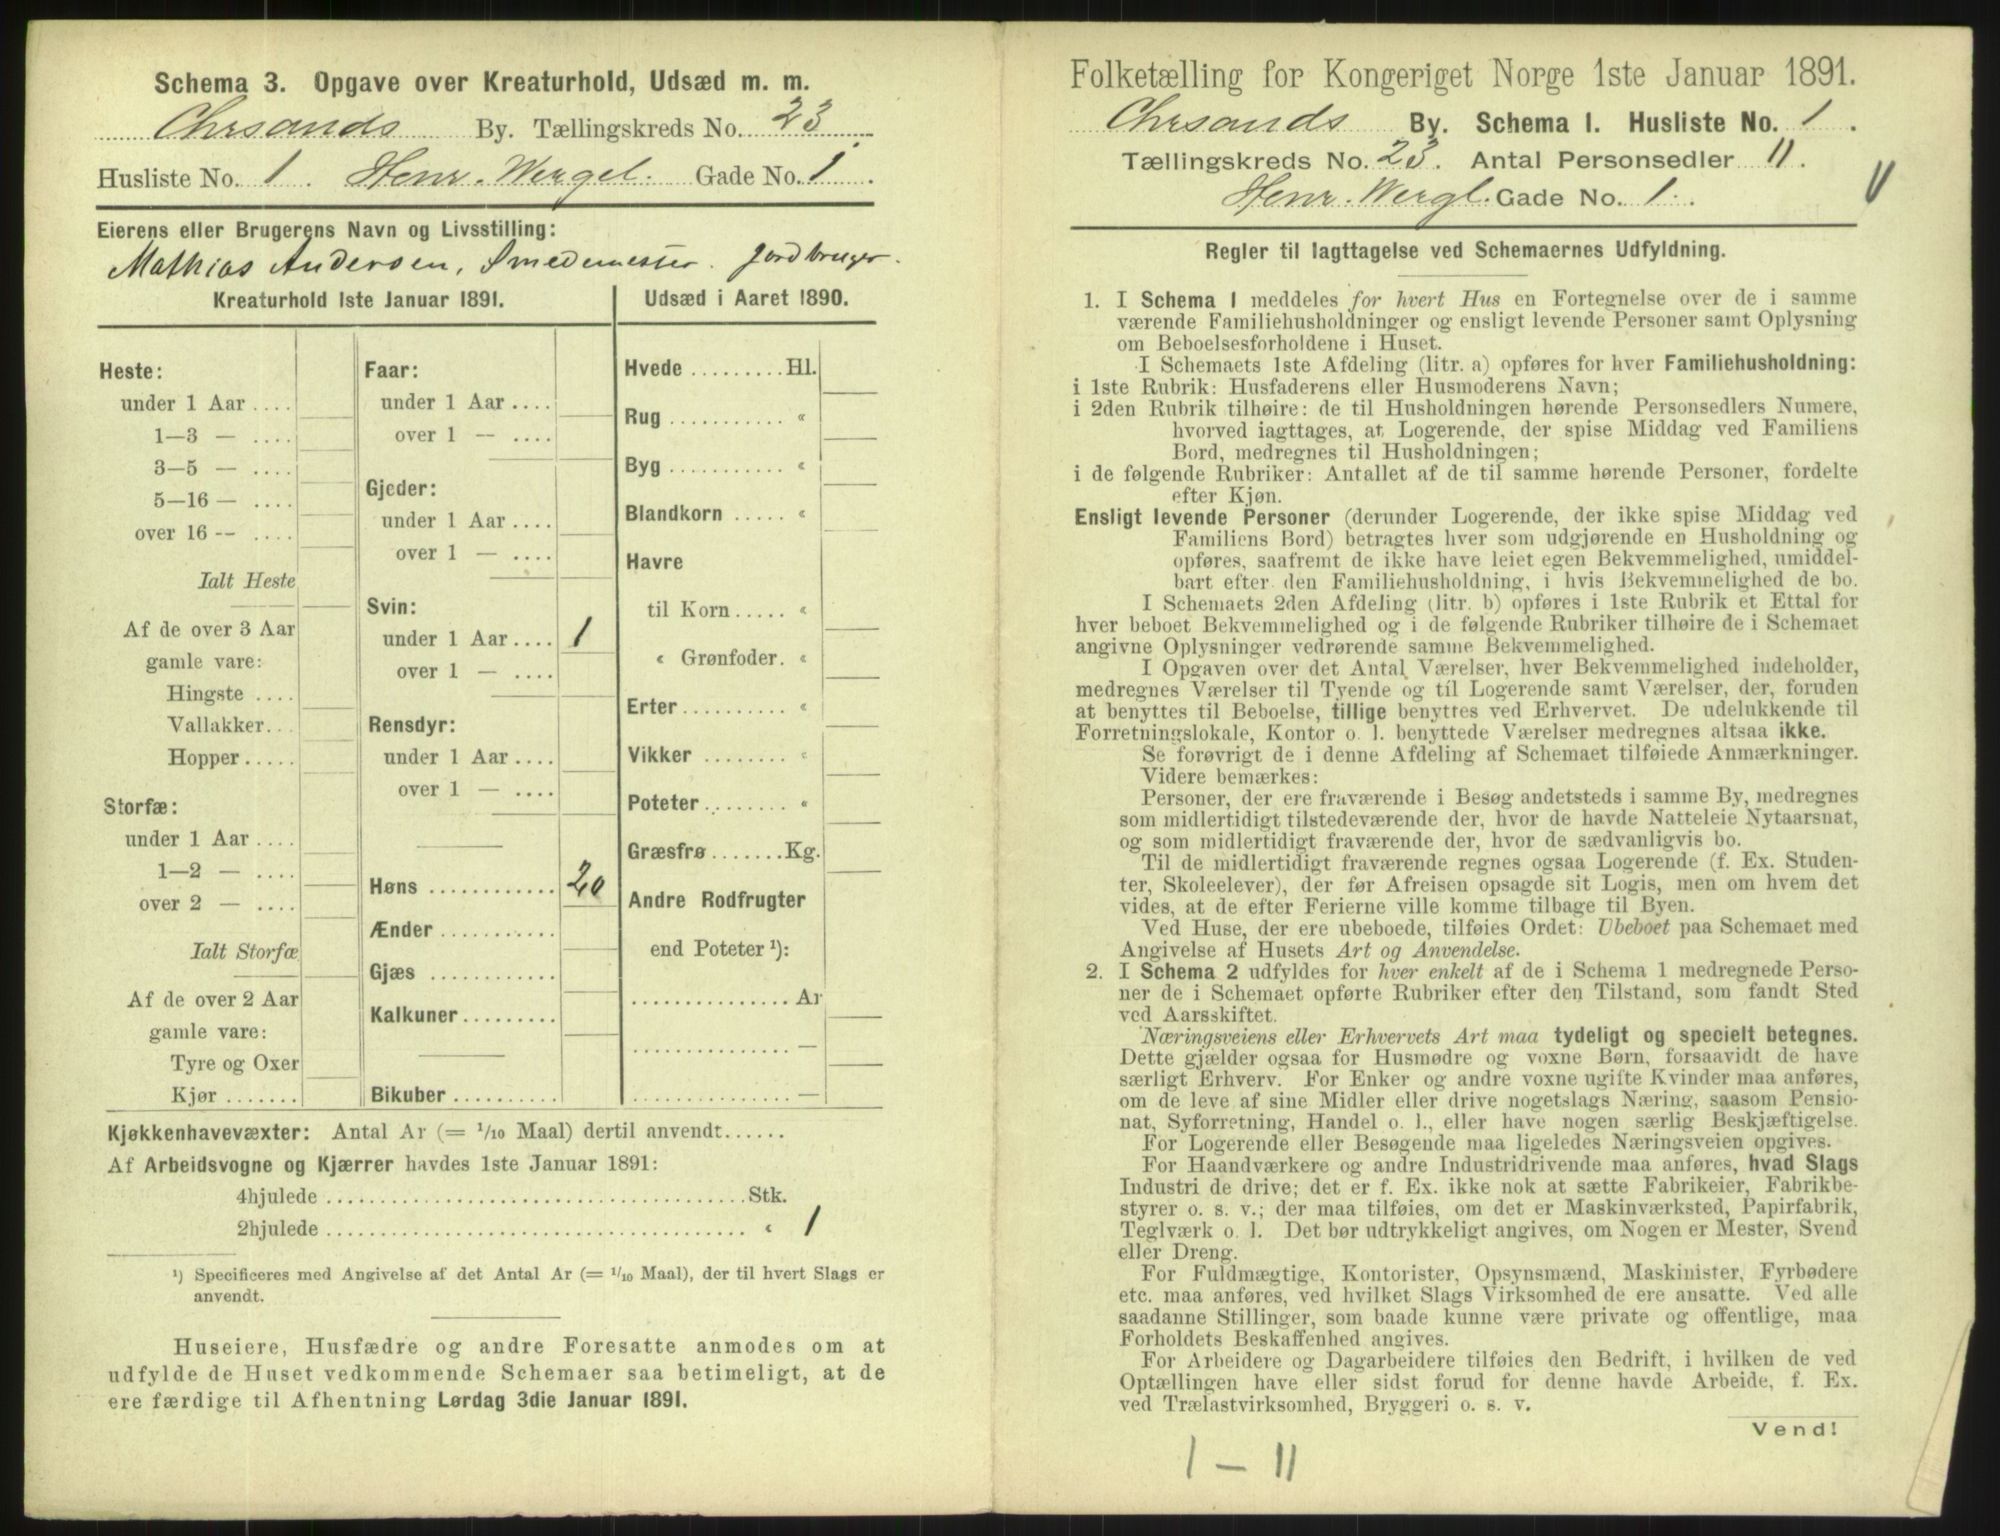 Schema 3. Opgave over Kreaturhold, Udsæd m. m.
Chrsands By. Tællingskreds No. 23
Husliste No. 1. Henr. Wergel. Gade No. 1.
Eierens eller Brugerens Navn og Livsstilling:
Mathias Andersen, Smedemester. Jordbruger.
Kreaturhold 1ste Januar 1891.
Heste:
under 1 Aar ....
1—3 — ....
3—5 — ....
5—16 — ....
over 16 -- ....
Ialt Heste
Af de over 3 Aar
gamle vare:
Hingste ....
Vallakker...
Hopper.....
Storfæ:
under 1 Aar ....
1—2 — ....
over 2 — ....
Ialt Storfæ
Af de over 2 Aar
gamle vare:
Tyre og Oxer
Kjør .......
Faar:
under 1 Aar ....
over 1 — ....
Gjeder:
under 1 Aar ....
over 1 — ....
Svin:
under 1 Aar .... 1
over 1 — ....
Rensdyr:
under 1 Aar ....
over 1 — ....
Høns ............ 20
Ænder ...........
Gjæs ............
Kalkuner.........
Bikuber ..........
Udsæd i Aaret 1890.
Hvede .........Hl.
Rug ........... «
Byg ........... «
Blandkorn ..... «
Havre
til Korn ..... «
« Grønfoder. «
Erter .......... «
Vikker ........ «
Poteter ........ «
Græsfrø .......Kg.
Andre Rodfrugter
end Poteter ¹):
............... Ar
............... —
............... —
Kjøkkenhavevæxter: Antal Ar (= 1/10 Maal) dertil anvendt......
Af Arbeidsvogne og Kjærrer havdes 1ste Januar 1891:
4hjulede ........................................Stk.
2hjulede ........................................ « 1
¹) Specificeres med Angivelse af det Antal Ar (= 1/10 Maal), der til hvert Slags er
anvendt.
Huseiere, Husfædre og andre Foresatte anmodes om at
udfylde de Huset vedkommende Schemaer saa betimeligt, at de
ere færdige til Afhentning Lørdag 3die Januar 1891.
Folketælling for Kongeriget Norge 1ste Januar 1891.
Chrsands By. Schema 1. Husliste No. 1.
Tællingskreds No. 23. Antal Personsedler 11.
Henr. Wergl. Gade No. 1.
Regler til Iagttagelse ved Schemaernes Udfyldning.
1. I Schema 1 meddeles for hvert Hus en Fortegnelse over de i samme
værende Familiehusholdninger og ensligt levende Personer samt Oplysning
om Beboelsesforholdene i Huset.
I Schemaets 1ste Afdeling (litr. a) opføres for hver Familiehusholdning:
i 1ste Rubrik: Husfaderens eller Husmoderens Navn;
i 2den Rubrik tilhøire: de til Husholdningen hørende Personsedlers Numere,
hvorved iagttages, at Logerende, der spise Middag ved Familiens
Bord, medregnes til Husholdningen;
i de følgende Rubriker: Antallet af de til samme hørende Personer, fordelte
efter Kjøn.
Ensligt levende Personer (derunder Logerende, der ikke spise Middag ved
Familiens Bord) betragtes hver som udgjørende en Husholdning og
opføres, saafremt de ikke have leiet egen Bekvemmelighed, umiddel-
bart efter den Familiehusholdning, i hvis Bekvemmelighed de bo.
I Schemaets 2den Afdeling (litr. b) opføres i 1ste Rubrik et Ettal for
hver beboet Bekvemmelighed og i de følgende Rubriker tilhøire de i Schemaet
angivne Oplysninger vedrørende samme Bekvemmelighed.
I Opgaven over det Antal Værelser, hver Bekvemmelighed indeholder,
medregnes Værelser til Tyende og til Logerende samt Værelser, der, foruden
at benyttes til Beboelse, tillige benyttes ved Erhvervet. De udelukkende til
Forretningslokale, Kontor o. l. benyttede Værelser medregnes altsaa ikke.
Se forøvrigt de i denne Afdeling af Schemaet tilføiede Anmærkninger.
Videre bemærkes:
Personer, der ere fraværende i Besøg andetsteds i samme By, medregnes
som midlertidigt tilstedeværende der, hvor de havde Natteleie Nytaarsnat,
og som midlertidigt fraværende der, hvor de sædvanligvis bo.
Til de midlertidigt fraværende regnes ogsaa Logerende (f. Ex. Studen-
ter, Skoleelever), der før Afreisen opsagde sit Logis, men om hvem det
vides, at de efter Ferierne ville komme tilbage til Byen.
Ved Huse, der ere ubeboede, tilføies Ordet: Ubeboet paa Schemaet med
Angivelse af Husets Art og Anvendelse.
2. I Schema 2 udfyldes for hver enkelt af de i Schema 1 medregnede Perso-
ner de i Schemaet opførte Rubriker efter den Tilstand, som fandt Sted
ved Aarsskiftet.
Næringsveiens eller Erhvervets Art maa tydeligt og specielt betegnes.
Dette gjælder ogsaa for Husmødre og voxne Børn, forsaavidt de have
særligt Erhverv. For Enker og andre voxne ugifte Kvinder maa anføres,
om de leve af sine Midler eller drive nogetslags Næring, saasom Pensio-
nat, Syforretning, Handel o. l., eller have nogen særlig Beskjæftigelse.
For Logerende eller Besøgende maa ligeledes Næringsveien opgives.
For Haandværkere og andre Industridrivende maa anføres, hvad Slags
Industri de drive; det er f. Ex. ikke nok at sætte Fabrikeier, Fabrikbe-
styrer o. s. v.; der maa tilføies, om det er Maskinværksted, Papirfabrik,
Teglværk o. l. Det bør udtrykkeligt angives, om Nogen er Mester, Svend
eller Dreng.
For Fuldmægtige, Kontorister, Opsynsmænd, Maskinister, Fyrbødere
etc. maa anføres, ved hvilket Slags Virksomhed de ere ansatte. Ved alle
saadanne Stillinger, som baade kunne være private og offentlige, maa
Forholdets Beskaffenhed angives.
For Arbeidere og Dagarbeidere tilføies den Bedrift, i hvilken de ved
Optællingen have eller sidst forud for denne havde Arbeide, f. Ex.
ved Trælastvirksomhed, Bryggeri o. s. v.
Vend!
1 – 11